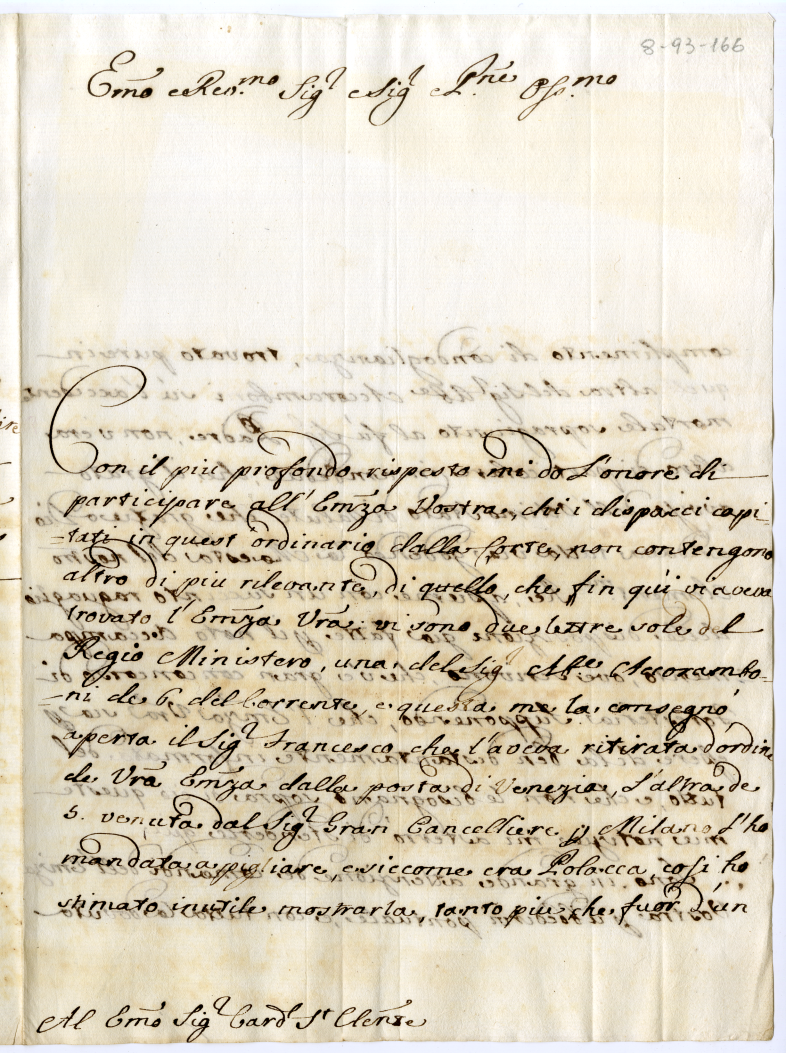 8-93-166
Em̃o e Reu.mo Sig.r e Sig.r e P.ne Oss.mo
Con il più profondo rispetto mi do l'onore di
participare all'Em̃za Vostra, chi i dispacci capi-
-tati in quest'ordinario dalla Corte, non contengono
altro di più rilevante, di quello, che fin quì vi aveva
trovato l'Em̃za Vr̃a: vi sono due lettre sole del
Regio Ministero, una del Sig.r Abe Accorambo-
-ni de 6. del corrente, e questa me la consegnò
aperta il Sig.r Francesco che l'aveva ritirata d'ordine
de Vr̃a Em̃za dalla posta di Venezia, l'altra de
5. venuta dal Sig.r Gran Cancelliere Milano l'ho
mandata a pigliare, e siccome era Polacca, così ho
stimato inutile mostrarla, tanto più che fuor d'un
Al Em̃o Sig.r Card.l S.t Clem̃te